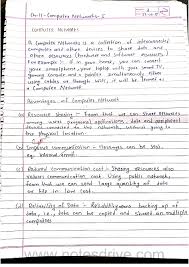 Unit-1 Computer Networks-I
COMPUTER NETWORKS
A Computer Network is a collection of interconnected
computers and other devices to share data and
other resources (hardware and software resources)
For example: If in your home, you can connect
your smartphone, your laptop with your smart TV,
gaming console and a printer simultaneously, either
using cables or through wifi, it will be termed as
Computer Network.
Advantages of Computer Network
(a) Resource Sharing - Team that we can share resources
among users programs/applications, data and peripheral
devices connected to the network, without going to
physical location.
(b) Improved Communication - Messages can be sent
eg. internet, email.
(c) Reduced Communication cost - Sharing resources also
reduces communication cost. Using public networks,
Team that we can send large quantity of data
at in low cost.
(d) Reliability of Data - Reliability means backing up of
data, i.e., data can be copied and stored on multiple
computers
www.notesdrive.com